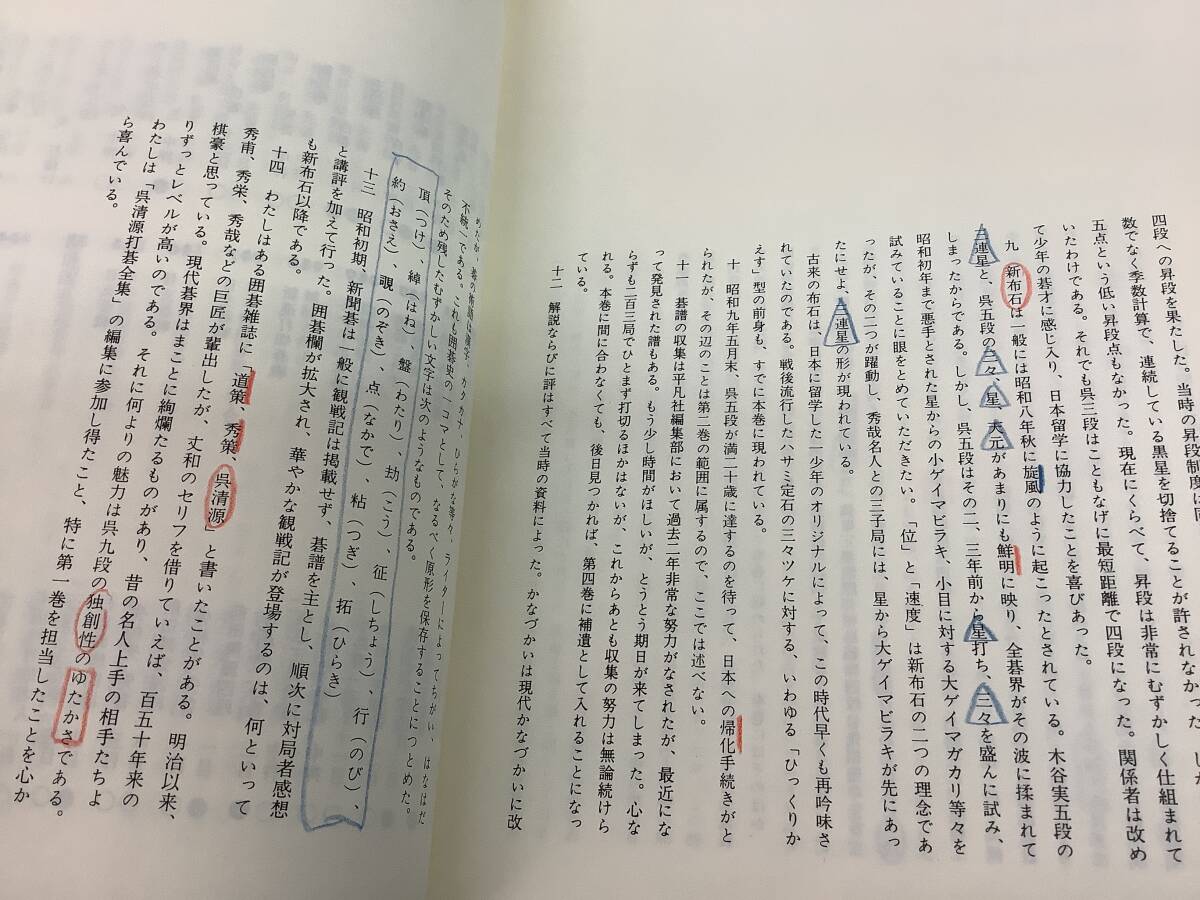 四段への昇段を果たした。当時の昇段制度は同
数でなく季数計算で、連続している黒星を切捨てることが許されなかった
五点という低い昇段点もなかった。現在にくらべて、昇段は非常にむずかしく仕組まれて
いたわけである。それでも呉三段はこともなげに最短距離で四段になった。関係者は改め
て少年の碁才に感じ入り、日本留学に協力したことを喜びあった。
九　新布石は一般には昭和八年秋に旋風のように起こったとされている。木谷実五段の
三連星と、呉五段の三々、星、天元があまりにも鮮明に映り、全碁界がその波に揉まれて
しまったからである。しかし、呉五段はその二、三年前から星打ち、三々を盛んに試み、
昭和初年まで悪手とされた星からの小ゲイマビラキ、小目に対する大ゲイマガカリ等々を
試みていることに眼をとめていただきたい。「位」と「速度」は新布石の二つの理念であ
ったが、その二つが躍動し、秀哉名人との三子局には、星から大ゲイマビラキが先にあっ
たにせよ、三連星の形が現われている。
古来の布石は、日本に留学した一少年のオリジナルによって、この時代早くも再吟味さ
れていたのである。戦後流行したハサミ定石の三々ツケに対する、いわゆる「ひっくりか
えす」型の前身も、すでに本巻に現われている。
十　昭和九年五月末、呉五段が満二十歳に達するのを待って、日本への帰化手続きがと
られたが、その辺のことは第二巻の範囲に属するので、ここでは述べない。
十一　碁譜の収集は平凡社編集部において過去二年非常な努力がなされたが、最近にな
って発見された譜もある。もう少し時間がほしいが、とうとう期日が来てしまった。心な
らずも二百三局でひとまず打切るほかはないが、これからあとも収集の努力は無論続けら
れる。本巻に間に合わなくても、後日見つかれば、第四巻に補遺として入れることになっ
ている。
十二　解説ならびに評はすべて当時の資料によった。かなづかいは現代かなづかいに改
めたが、碁の術語は漢字、カタカナ、ひらがな等々、ライターによってちがい、はなはだ
不統一である。これも囲碁史の一コマとして、なるべく原形を保存することにつとめた。
そのため残したむずかしい文字は次のようなものである。
頂（つけ）、綽（はね）、盤（わたり）、劫（こう）、征（しちょう）、行（のび）、
約（おさえ）、覗（のぞき）、点（なかで）、粘（つぎ）、拓（ひらき）
十三　昭和初期、新聞碁は一般に観戦記は掲載せず、碁譜を主とし、順次に対局者感想
と講評を加えて行った。囲碁欄が拡大され、華やかな観戦記が登場するのは、何といって
も新布石以降である。
十四　わたしはある囲碁雑誌に「道策、秀策、呉清源」と書いたことがある。明治以来、
秀甫、秀栄、秀哉などの巨匠が輩出したが、丈和のセリフを借りていえば、百五十年来の
棋豪と思っている。現代碁界はまことに絢爛たるものがあり、昔の名人上手の相手たちよ
りずっとレベルが高いのである。それに何よりの魅力は呉九段の独創性のゆたかさである。
わたしは「呉清源打碁全集」の編集に参加し得たこと、特に第一巻を担当したことを心か
ら喜んでいる。